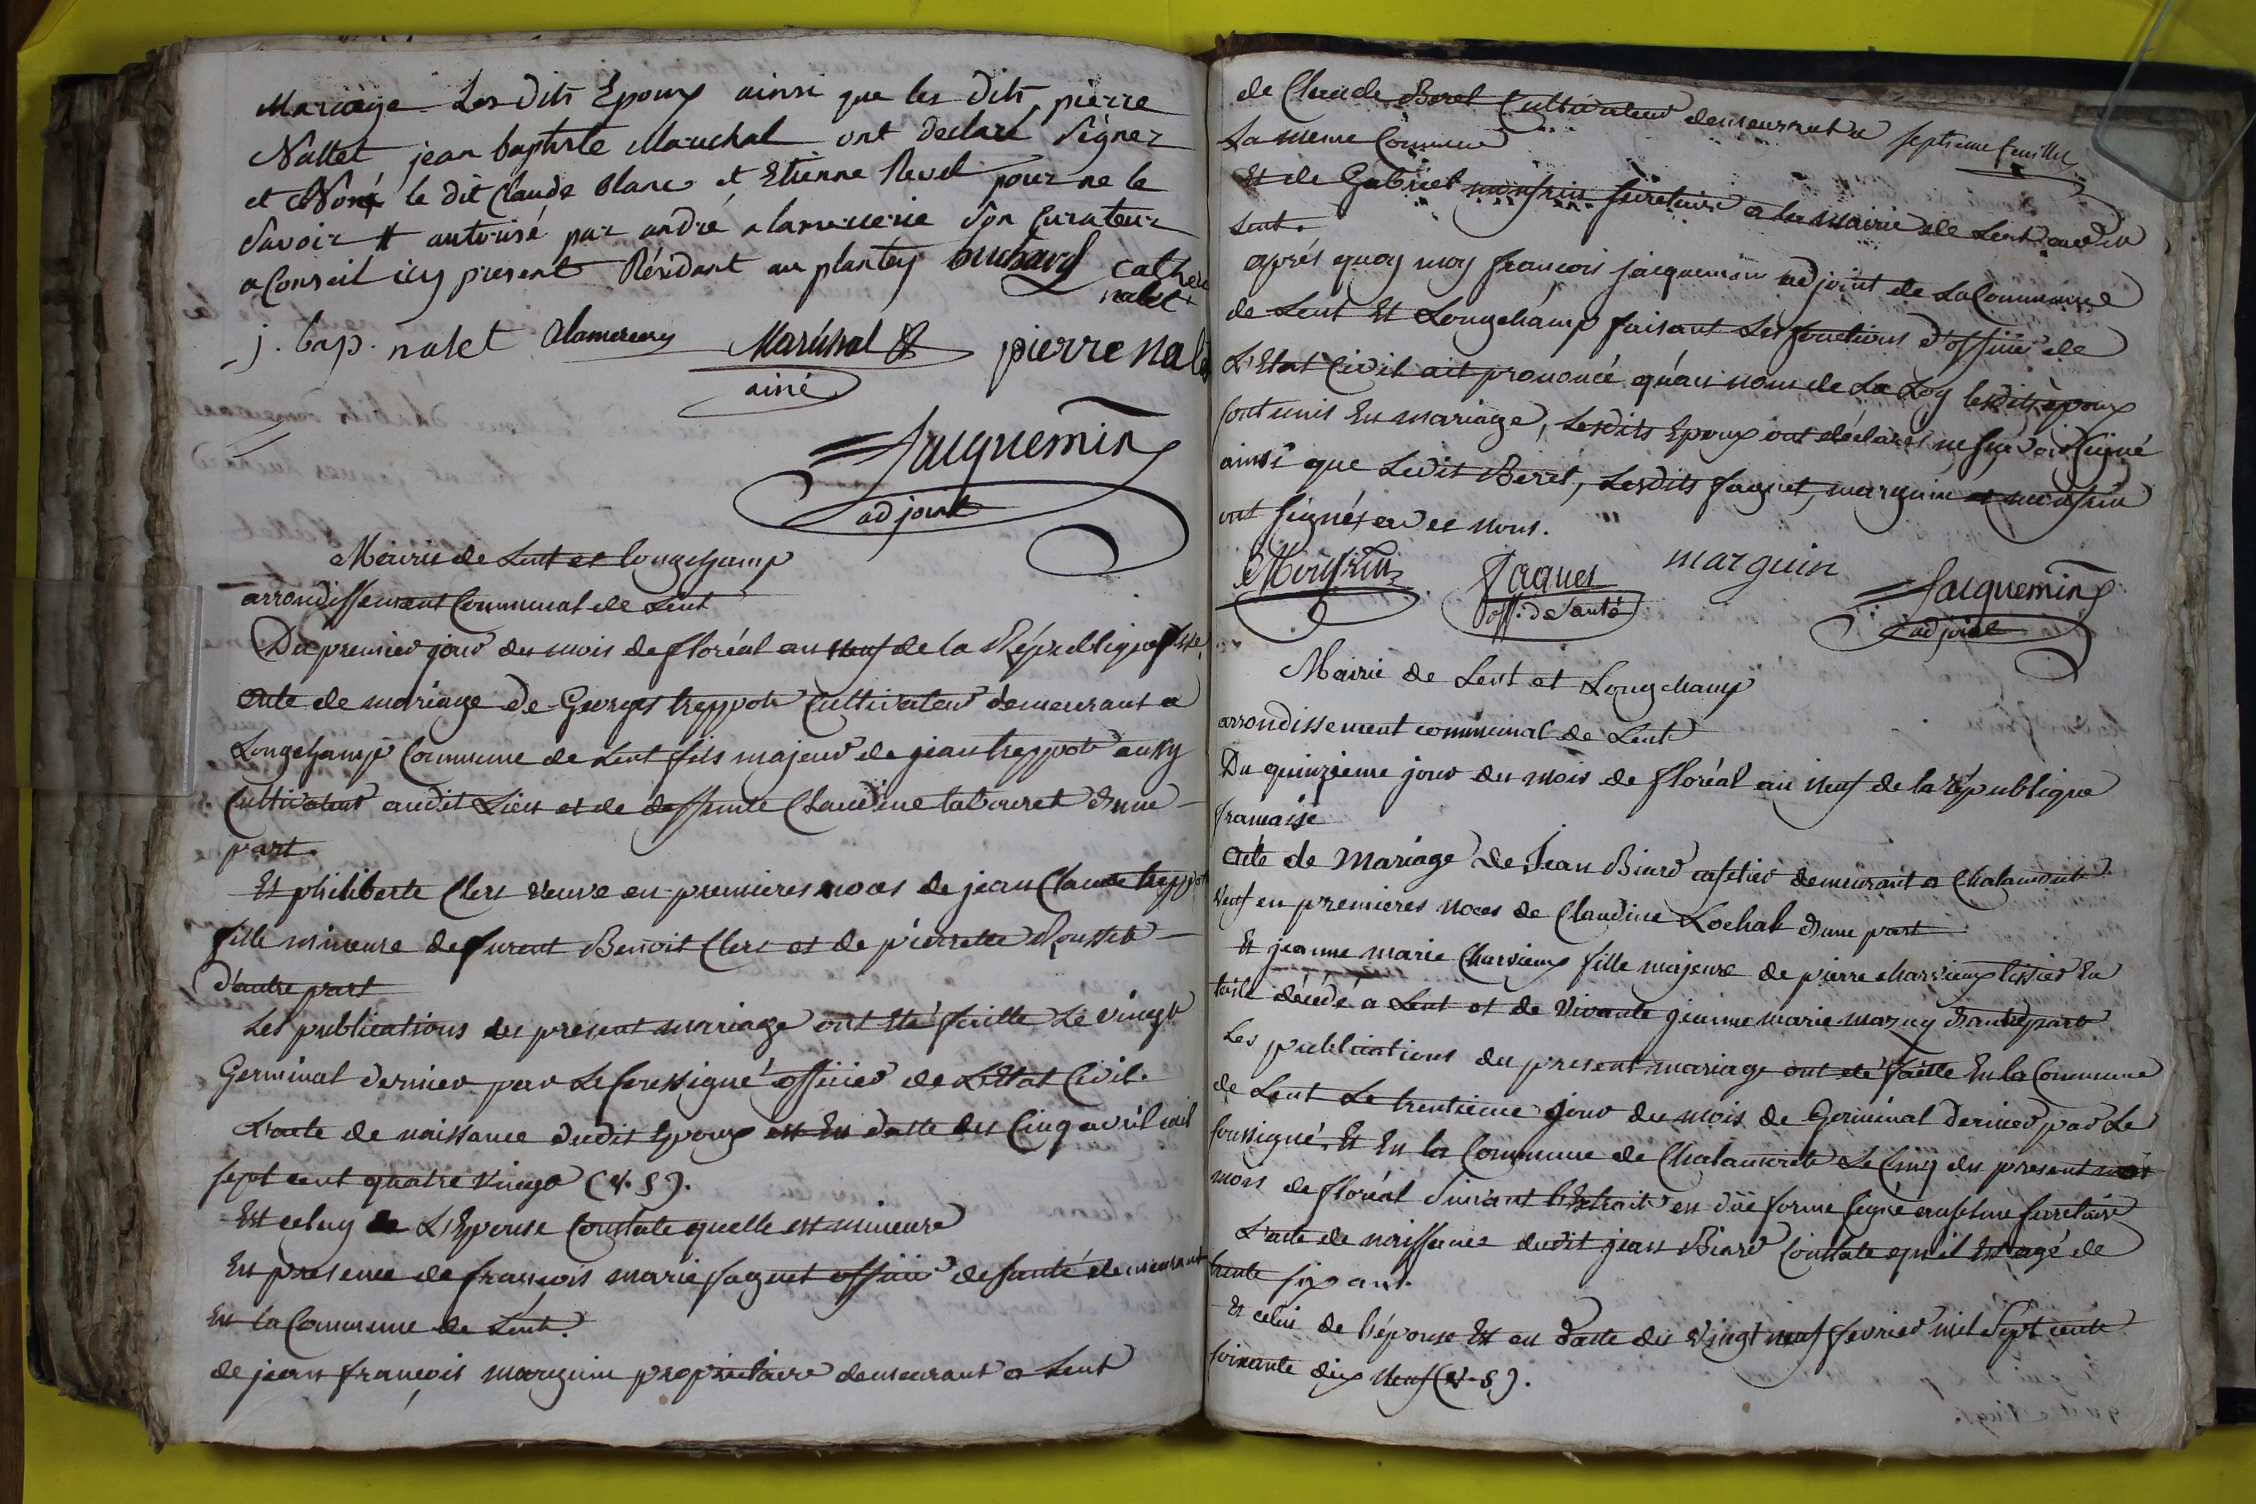 Mariage Les dits Epoux ainsi que les dits pierre
Nallet jean baptiste Marechal ont declaré Signer
et Non le dit Claude Blanc et Etienne Revel pour ne le
Savoir # autorisé par andré alamercerie Son Curateur
a Conseil icy present Résidant au plantay buchard Cathe
nalet
j. bap. nalet alamercery Maréchal pierre nalet
ainé
Jacquemin
adjoint
Mairie de Lent et longchamp
arrondissement Communal de Lent
Du premier jour du mois de floréal an neuf de la République fse
acte de mariage de Georges treppoz Cultivateur demeurant a
Longchamp Commune de Lent fils majeur de jean treppoz aussy
Cultivateur audit Lieu et de deffunte Claudine labouret d'une
part.
Et philiberte Clerc veuve en premieres noces de jean Claude treppoz
fille mineure de furent Benoit Clerc et de pierrette Rousset
d'autre part
Les publications du présent mariage ont été faitte Le vingt
Germinal dernier par Le soussigné officier de L'Etat Civil.
L'acte de naissance dudit Epoux est En datte du Cinq avril mil
sept cent quatre vingt (v. s).
Est celuy de L'Epouse Constate quelle est mineure
En presence de françois marie faguet officier de santé demeurant
En la Commune de Lent.
de jean françois marguin propriétaire demeurant a Lent
septieme feuillet
de Claude Beret Cultivateur demeurant a
La meme Commune
Et de Gabriel monfrin secretaire a la mairie de Lent audit
Lent.
aprés quoy moy françois jacquemin adjoint de La Commune
de Lent Et Longchamp faisant Les fonctions d'officier de
L'Etat Civil ait prononcé qu'au nom de La Loy lesdits époux
sont unis En mariage, Lesdits Epoux ont déclarés ne sçavoir signé
ainsi que Ledit Beret, Lesdits faguet, marguin et monfrin
ont signés avec nous.
Monfrin faguet marguin Jacquemin
off. de santé adjoint
Mairie de Lent et Longchamp
arrondissement communal de Lent
Du quinzieme jour du mois de floréal an neuf de la république
francaise
acte de Mariage de Jean Biard caffetier demeurant a Chalamont
veuf en premieres noces de Claudine Lochal d'une part
Et jeanne marie Charvieux fille majeure de pierre charvieux tissier En
toile décédé a Lent et de vivante jeanne marie mazuy d'autre part
Les publications du present mariage ont été faitte En la Commune
de Lent Le trentieme jour du mois de Germinal dernier par Le
soussigné, Et En la Commune de Chalamont Le Cinq du present mois
mois de floréal Suivant l'Extrait en düe forme signé secretaire
L'acte de naissance dudit jean Biard Constate qu'il Est agé de
trente six ans.
Et celui de l'épouse Est en datte du vingt neuf fevrier mil Sept cent
soixante dix neuf (v. s).